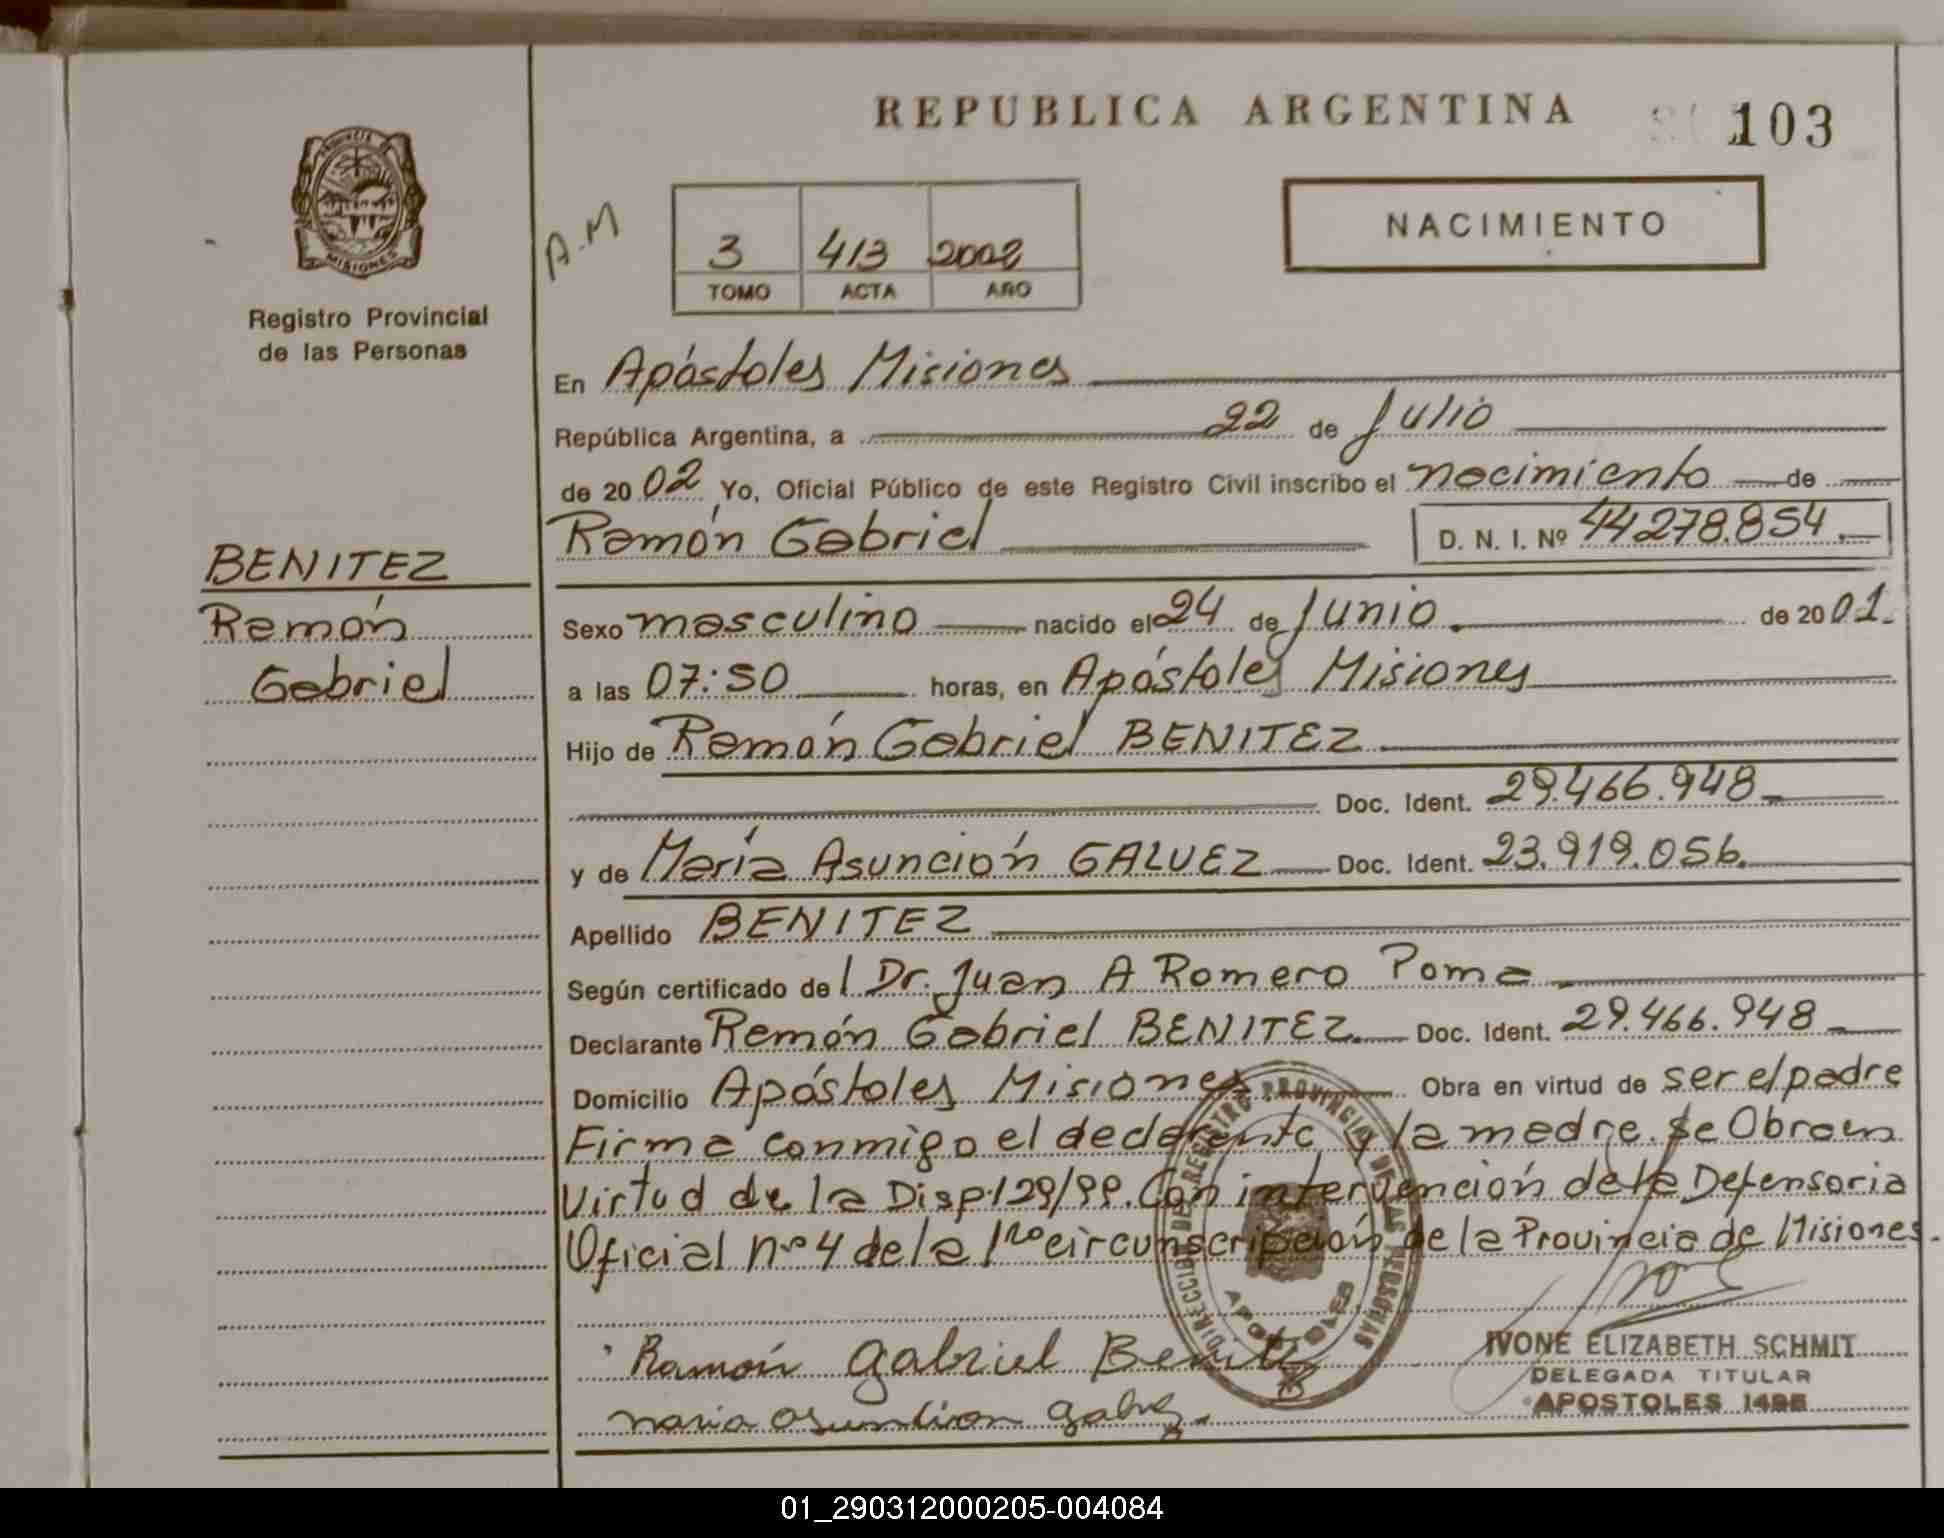 REPUBLICA ARGENTINA
103
PROVINCIA DE
MISIONES
Registro Provincial
de las Personas
A.M
3 413 2002
TOMO ACTA AÑO
NACIMIENTO
En Apóstoles Misiones
República Argentina, a 22 de Julio
de 20 02 Yo, Oficial Público de este Registro Civil inscribo el nacimiento de
Ramón Gabriel D. N. I. Nº 44278.854.
BENITEZ
Ramón
Gabriel
Sexo masculino nacido el 24 de Junio. de 20 01.
a las 07:50 horas, en Apóstoles Misiones
Hijo de Ramón Gabriel BENITEZ
Doc. Ident. 29.466.948
y de María Asunción GALVEZ Doc. Ident. 23.919.056.
Apellido BENITEZ
Según certificado de l Dr. Juan A Romero Poma
Declarante Ramón Gabriel BENITEZ. Doc. Ident. 29.466.948
Domicilio Apóstoles Misiones Obra en virtud de ser el padre
Firma conmigo el declarante y la madre. Se Obra en
Virtud de la Disp. 129/99. Con intervención de la Defensoria
Oficial nº 4 de la 1ra circunscripción de la Provincia de Misiones.
DIRECCION DE REGISTRO PROVINCIAL DE LAS PERSONAS
APOSTOLES
Ramón Gabriel Benitez
maria asuntion galvez.
IVONE ELIZABETH SCHMIT
DELEGADA TITULAR
APOSTOLES
01_290312000205-004084